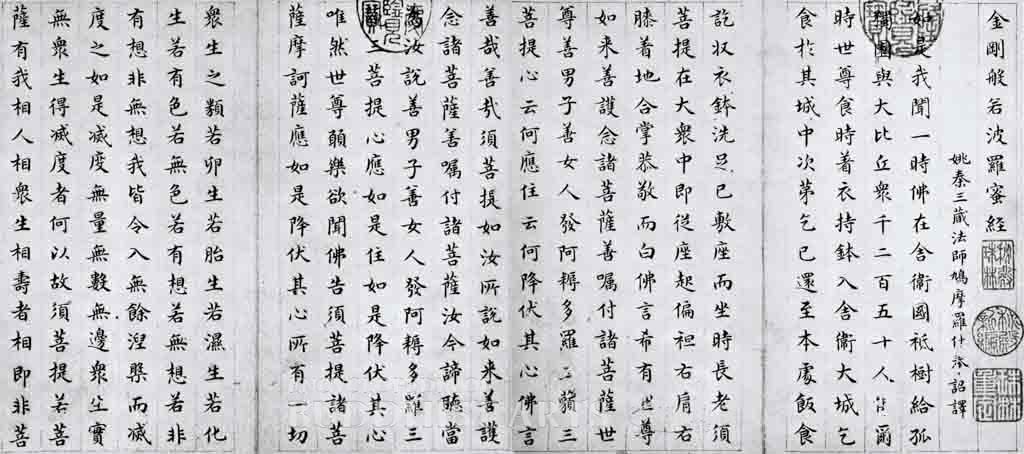 金剛般若波羅蜜經
姚秦三藏法師鳩摩羅什奉詔譯
如是我聞一時佛在舍衛國祇樹給孤
獨園與大比丘衆千二百五十人俱爾
時世尊食時着衣持鉢入舍衛大城乞
食於其城中次第乞已還至本處飯食
訖収衣鉢洗足已敷座而坐時長老須
菩提在大衆中即從座起偏袒右肩右
膝着地合掌恭敬而白佛言希有世尊
如来善護念諸菩薩善囑付諸菩薩世
尊善男子善女人發阿耨多羅三藐三
菩提心云何應住云何降伏其心佛言
善哉善哉須菩提如汝所說如来善護
念諸菩薩善囑付諸菩薩汝今諦聽當
為汝說善男子善女人發阿耨多羅三
藐三菩提心應如是住如是降伏其心
唯然世尊願樂欲聞佛告須菩提諸菩
薩摩訶薩應如是降伏其心所有一切
衆生之類若卵生若胎生若濕生若化
生若有色若無色若有想若無想若非
有想非無想我皆令入無餘涅槃而滅
度之如是滅度無量無數無邊衆生實
無衆生得滅度者何以故須菩提若菩
薩有我相人相衆生相壽者相即非菩